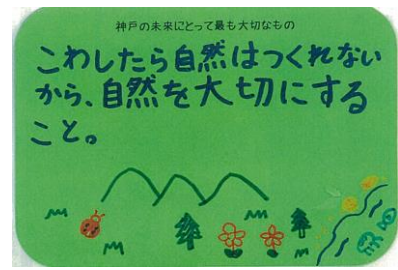 神戸の未来にとって最も大切なもの
こわしたら自然はつくれない
から、自然を大切にする
こと。